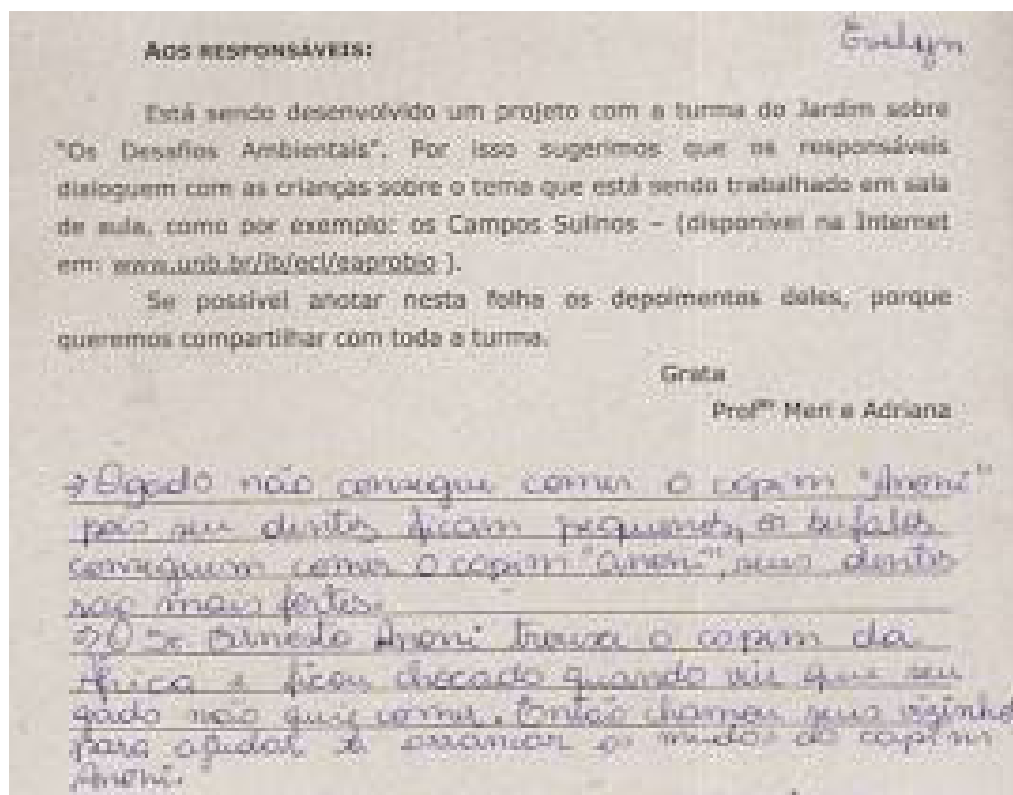 Evelyn
AOS RESPONSÁVEIS:
Está sendo desenvolvido um projeto com a turma do Jardim sobre
"Os Desafios Ambientais". Por isso sugerimos que os responsáveis
dialoguem com as crianças sobre o tema que está sendo trabalhado em sala
de aula, como por exemplo: os Campos Sulinos – (disponível na Internet
em: www.unb.br/ib/ecl/eaprobio ).
Se possível anotar nesta folha os depoimentos deles, porque
queremos compartilhar com toda a turma.
Grata
Profªˢ Meri e Adriana
→ O gado não consegue comer o capim "Anoni"
pois seu dentes ficam pequenos, os bufalos
conseguem comer o capim "anoni", seus dentes
são mais fortes.
→ O Sr. Ernesto Anoni trouxe o capim da
África e ficou chocado quando viu que seu
gado não quis comer. Então chamou seus vizinhos
para ajudar a arrancar as mudas do capim
Anoni.